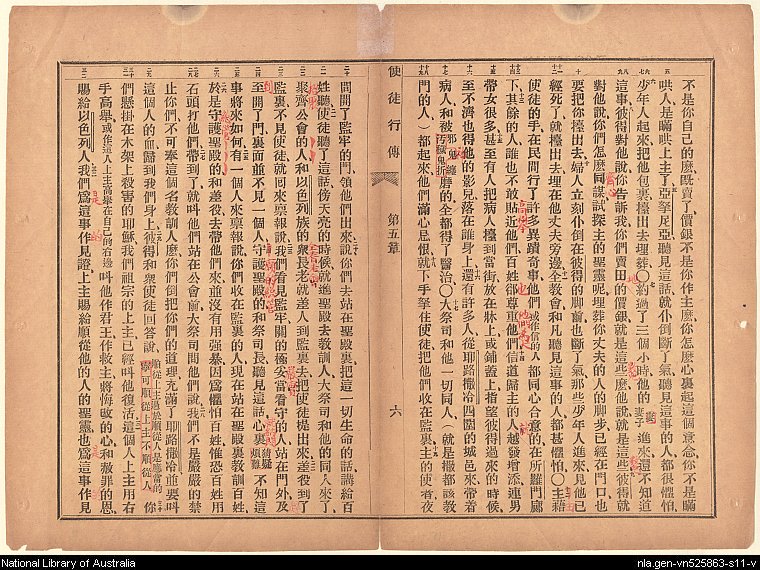 不是你自己的麽既賣了價銀不是你作主麽你怎麽心裏起這個意念你不是瞞
哄人是瞞哄上主了亞拏尼亞聽見這話就仆倒斷了氣聽見這事的人都很懼怕
少年人起來把他包裹擡出去埋葬〇約過了三個小時他的妻子進來還不知道
這事彼得對他說你告訴我你們賣田的價銀就是這些麽他說就是這些彼得就
對他說你們怎麽同謀試探主的聖靈呢埋葬你丈夫的人的脚步已經在門口也
要把你擡出去婦人立刻仆倒在彼得的脚前也斷了氣那些少年人進來見他已
經死了就擡出去埋在他丈夫旁邊全教會和凡聽見這事的人都甚懼怕〇主藉
使徒的手在民間行了許多異蹟奇事他們或作信的人都同心合意的在所羅門廊
下其餘的人誰也不敢貼近他們百姓都尊重他們信道歸主的人越發增添連男
帶女很多甚至有人把病人擡到當街放在牀上或鋪蓋上指望彼得過來的時候
至不濟也得他的影兒落在誰身上還有許多人從耶路撒冷四圍的城邑來帶着
病人和被邪鬼纏磨的全都得了醫治〇大祭司和他一切同人(就是撒都該教
門的人)都起來他們滿心忌恨就下手拏住使徒把他們收在監裏主的使者夜
使徒行傳 第五章 六
間開了監牢的門領他們出來說你們去站在聖殿裏把這一切生命的話講給百
姓聽使徒聽了這話傍天亮的時候就進聖殿去教訓人大祭司和他的同人來了
聚齊公會的人和以色列族的衆長老就差人到監裏去把使徒提出來差役到了
監裏不見使徒就回來禀報說我們看見監牢關的極妥當看守的人站在門外及
至開了門裏面並不見一個人守護聖殿的和祭司長聽見這話心裏猜疑煩難不知這
事將來如何有一個人來禀報說你們收在監裏的人現在站在聖殿裏教訓百姓
於是守護聖殿的和差役去帶他們來並沒有用強綦因爲懼怕百姓惟恐百姓用
石頭打他們帶到了就叫他們站在公會前大祭司問他們說我們不是嚴嚴的禁
止你們不可奉這個名教訓人麽你們倒把你們的道理充滿了耶路撒冷並要叫
這個人的血歸到我們身上彼得和衆使徒回答說順從上主過於順從人是應當的 你
們懸掛在木架上殺害的耶穌我們祖宗的上主已經叫他復活這個人上主用右
手高舉或作這人上主高舉在自己的右邊叫他作君王作救主將悔改的心和赦罪的恩
賜給以色列人我們爲這事作見證上主賜給順從他的人的聖靈也爲這事作見
National Library of Australia
nla.gen-vn525863-s11-v